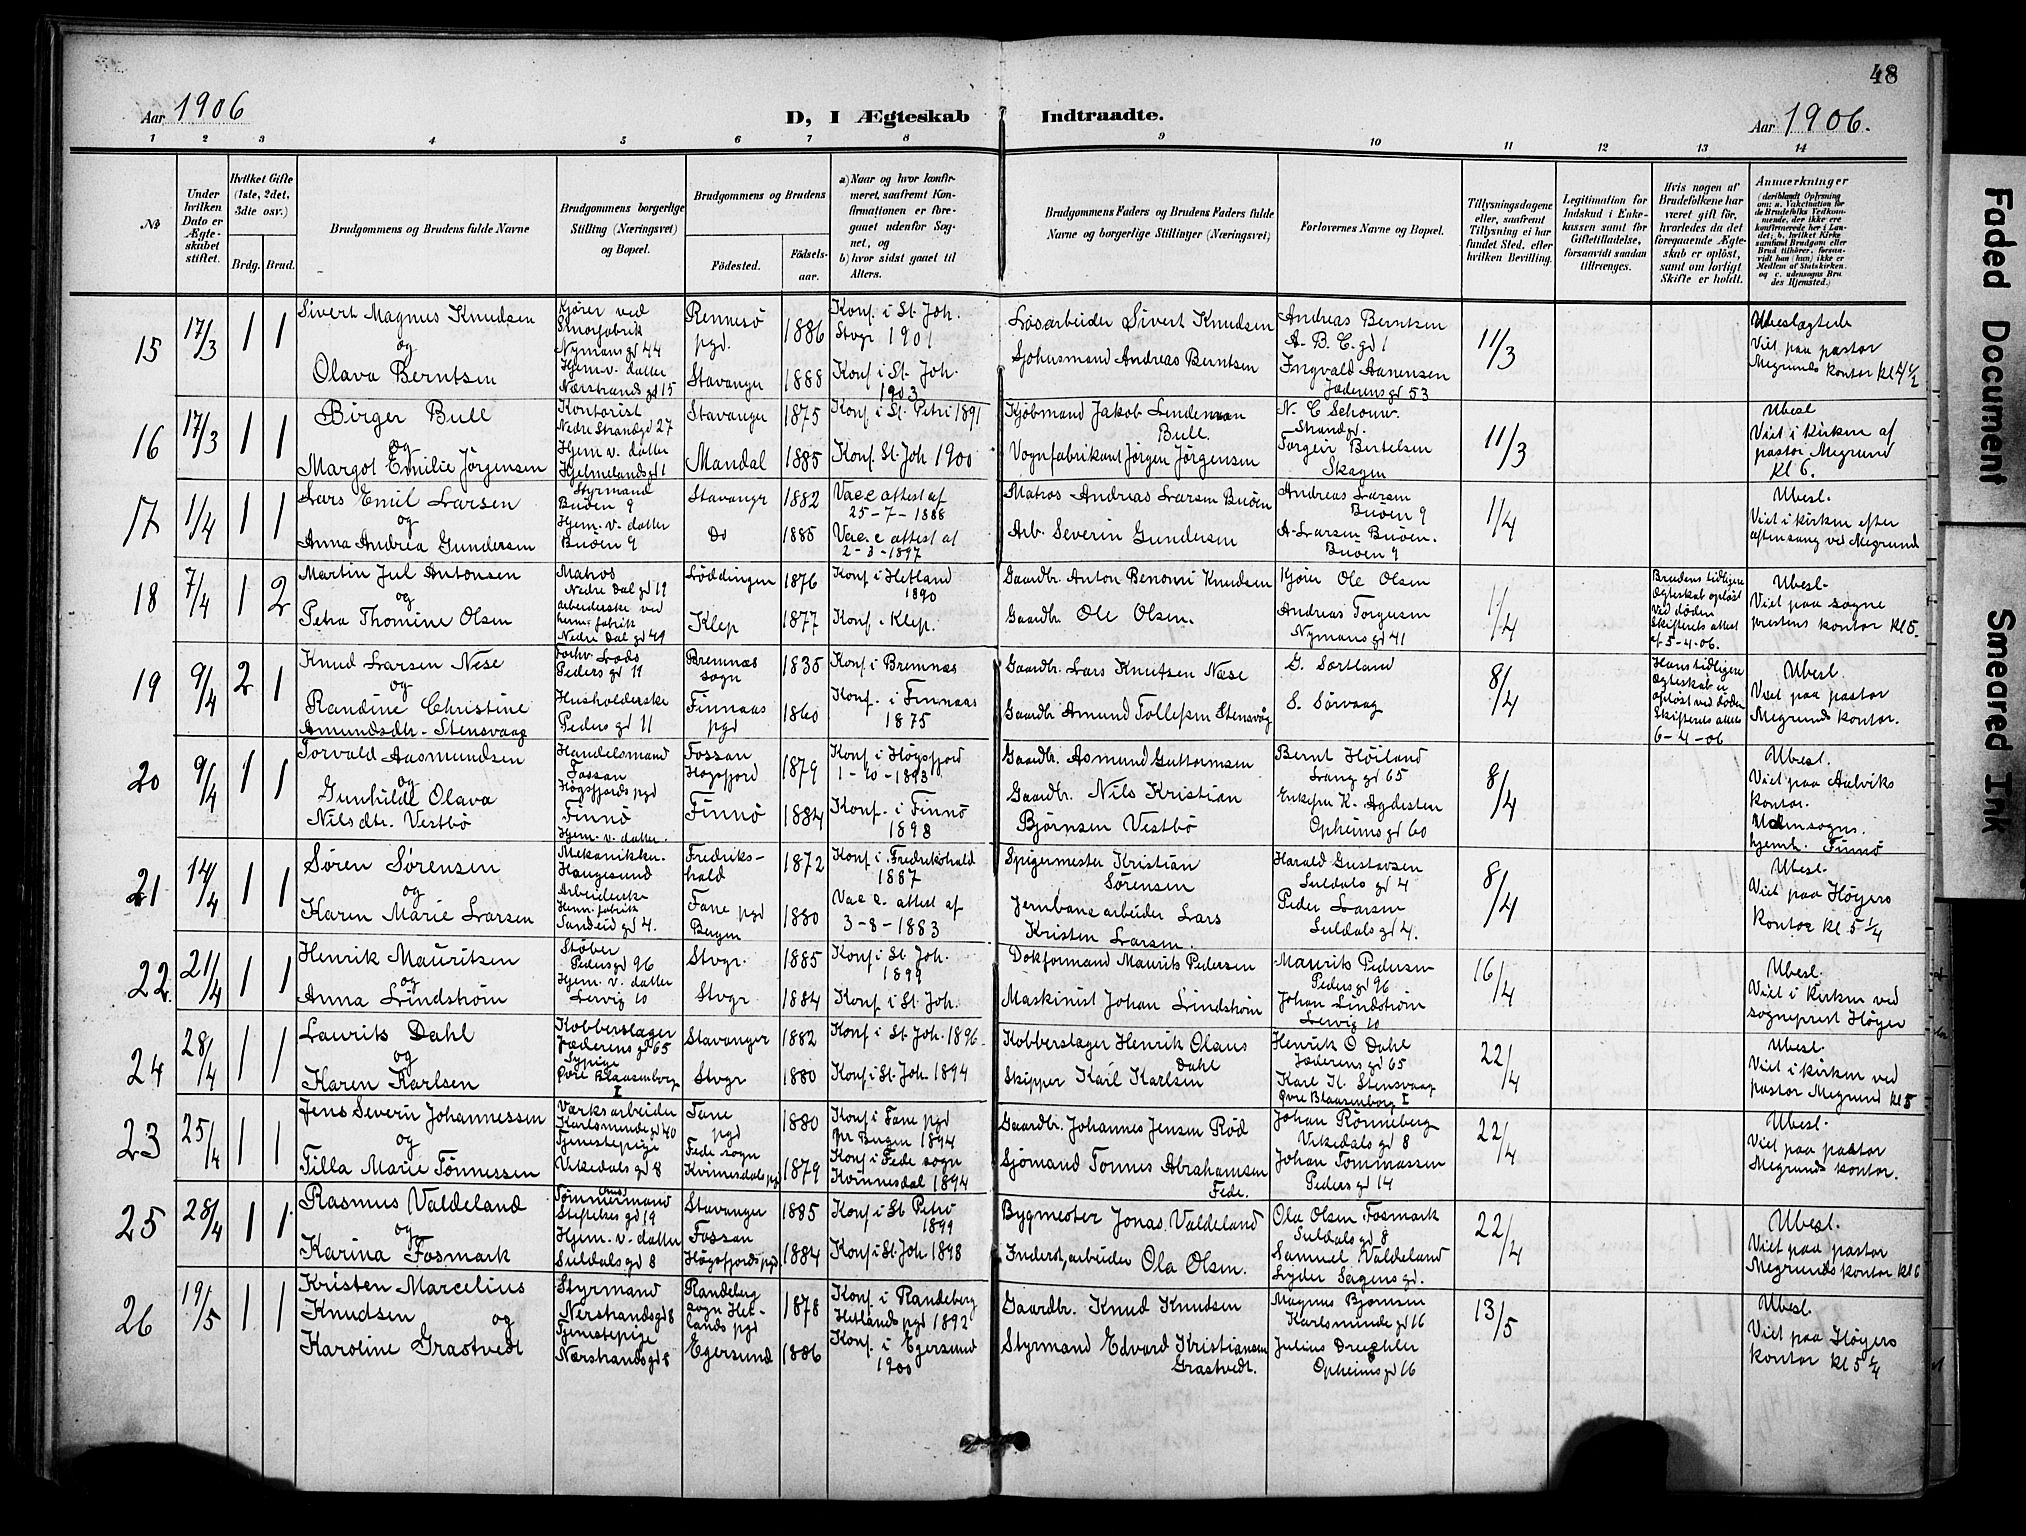 48
Aar 1906
D, I Ægteskab Indtraadte.
Aar 1906.
1 2 3 4 5 6 7 8 9 10 11 12 13 14
No
Under hvilken Dato er Ægteskabet stiftet.
Hvilket Gifte (1ste, 2det, 3die osv.)
Brdg. Brud.
Brudgommens og Brudens fulde Navne
Brudgommens borgerlige Stilling (Næringsvei) og Bopæl.
Brudgommens og Brudens
Födested. Födsels-aar.
a) Naar og hvor konfirmeret, saafremt Konfirmationen er foregaaet udenfor Sognet, og
b) hvor sidst gaaet til Alters.
Brudgommens Faders og Brudens Faders fulde Navne og borgerlige Stillinger (Næringsvei)
Forlovernes Navne og Bopæl.
Tillysningsdagene eller, saafremt Tillysning ei har fundet Sted, efter hvilken Bevilling.
Legitimation for Indskud i Enkekassen samt for Giftetilladelse, forsaavidt saadan tiltrænges.
Hvis nogen af Brudefolkene har været gift för, hvorledes da det foregaaende Ægteskab er oplöst, samt om lovligt Skifte er holdt.
Anmærkninger
(deriblandt Oplysning om: a. Vakcination for de Brudefolks Vedkommende, der ikke ere konfirmerede her i Landet; b. hvilket Kirkesamfund Brudgom eller Brud tilhörer, forsaavidt han (hun) ikke er Medlem af Statskirken, og c. udensogns Brudes Hjemsted.)
15 17/3 1 1
Sivert Magnus Knudsen
og
Olava Berntsen
Kjører ved
Smørfabrik
Nymansgd 44
Hjem v. datter
Nærstrandsgd 15
Rennesö
pgd. 1886
Stavanger 1888
Konf. i St. Joh.
Stvgr 1901
Konf i St. Joh.
1903
Løsarbeider Sivert Knudsen
Sjöhusmand Andreas Berntsen
Andreas Berntsen
A. B. C. gd 1
Ingvald Aanensen
Jæderens gd 53
11/3
Ubeslægtede
Viet paa pastor
Megrunds kontor kl 4 1/2
16 17/3 1 1
Birger Bull
og
Margot Emilie Jörgensen
Kontorist
Nedre Strandgd 27
Hjem v. datter
Hjelmelandsgd 1
Stavanger 1875
Mandal 1885
Konf i St. Petri 1891
Konf. St. Joh 1900
Kjöbmand Jakob Lindeman
Bull.
Vognfabrikant Jörgen Jörgensen
N. C Schouw.
Strandgd.
Torgeir Bertelsen
Skagen
11/3
Ubesl
Viet i Kirken af
pastor Megrund
Kl 6.
17 1/4 1 1
Lars Emil Larsen
og
Anna Andrea Gundersen
Styrmand
Buöen 9
Hjem. v. datter
Buöen 9
Stavangr 1882
Do 1885
Vacc attest af
25-7-1888
Vacc attest af
2-3-1897
Matros Andreas Larsen Buöen
Arb. Severin Gundersen
Andreas Larsen
Buöen 9
A. Larsen Buöen.
Buöen 9
1/4
Ubesl.
Viet i Kirken efter
aftensang ved Megrund
18 7/4 1 2
Martin Jul Antonsen
og
Petra Thomine Olsen
Matros
Nedre Dal gd 19
arbeiderske ved
herm. fabrik
Nedre Dal gd 49
Löddingen 1876
Klep 1877
Konf i Hetland
1890
Konf. Klep.
Gaardbr. Anton Benoni Knudsen
Gaardbr. Ole Olsen.
Kjörer Ole Olsen
Andreas Torgersen
Nymans gd 41
1/4
Brudens tidligere
Ægteskab oplöst
ved döden
Skifterets attest
af 5-4-06.
Ubesl.
Viet paa sogne
prestens kontor Kl 5.
19 9/4 2 1
Knud Larsen Nese
og
Randine Christine
Amundsdtr. Stensvaag
forhv. Lods
Peders gd 11
Husholderske
Peders gd 11
Bremnæs
sogn 1835
Finnaas
pgd 1860
Konf i Bremnæs
Konf. i Finnaas
1875
Gaardbr. Lars Knutsen Næse
Gaardbr Amund Tollefsen Stensvåg
G. Sortland
S. Sørvaag
8/4
Hans tidligere
Ægteskab er
oplöst ved döden
Skifterets attest
6-4-06
Ubesl.
Viet paa pastor
Megrunds kontor.
20 9/4 1 1
Torvald Aasmundsen
og
Gunhilde Olava
Nilsdtr. Vestbö
Handelsmand
Fossan
Høgsfjords pgd
Finnö
Hjem. v. datter.
Fossan
Høgsfjord 1879
Finnö 1884
Konf i Høgsfjord
1-10-1893
Konf. i Finnö
1898
Gaardbr. Asmund Guttormsen
Gaardbr. Nils Kristian
Björnsen Vestbö
Bernt Höiland
Lang gd 65
Enkefru K. Agdesten
Opheims gd 60
8/4
Ubesl.
Viet paa Aalviks
kontor.
Udensogns.
hjemh. Finnö
21 14/4 1 1
Søren Sørensen
og
Karen Marie Larsen
Mekanikker.
Haugesund
Arbeiderske
Herm. fabrik
Sandeid gd 4.
Fredriks-
hald 1872
Fane pgd
Bergen 1880
Konf. i Fredrikshald
1887
Vacc. attest af
3-8-1883
Spigermester Kristian
Sørensen
Jernbanearbeider Lars
Kristen Larsen.
Harald Gustavsen
Suldals gd 4
Peder Larsen
Suldals gd 4.
8/4
Ubesl.
Viet paa Höyers
kontor kl 5 1/4
22. 21/4 1 1
Henrik Mauritsen
og
Anna Lindström
Støber
Peders gd 96
Hjem. v. datter
Lervig 10
Stvgr. 1885
Stvgr. 1884
Konf. i St. Joh.
1899
Konf. i St. Joh.
Dokformand Maurits Pedersen
Maskinist Johan Lindström
Maurits Pedersen
Peders gd 96
Johan Lindström
Lervig 10
16/4
Ubesl.
Viet i kirken ved
sogneprest Höyer
24 28/4 1 1
Laurits Dahl
og
Karen Karlsen
Kobberslager
Jæderens gd 65
Sypige
Øvre Blaasenborg
I
Stavanger 1882
Stvgr 1880
Konf i St. Joh. 1896.
Konf i St. Joh 1894
Kobberslager Henrik Olaus
Dahl
Skipper Karl Karlsen
Henrik O Dahl
Jæderens gd 65
Karl K. Stensvaag
Øvre Blaasenborg I
22/4
Ubesl.
Viet i kirken ved
pastor Megrund kl 5
23 25/4 1 1
Jens Severin Johannessen
og
Tilla Marie Tönnessen
Værksarbeider
Karlsminde gd 40
Tjenestepige
Vikedals gd 8
Fane
pgd 1880
Fede sogn
Kvinesdals pgd 1879
Konf i Fane pgd
pr Bergen 1894
Konf i Fede sogn
Kvinnesdal 1894
Gaardbr. Johannes Jensen Röd
Sjömand Tönnes Abrahamsen
Fede.
Johan Rönneberg
Vikedals gd 8
Johan Tommassen
Peders gd 14
22/4
Ubesl.
Viet paa pastor
Megrunds kontor.
25 28/4 1 1
Rasmus Valdeland
og
Karina Fosmark
Tömmermand
Stiftelses gd 19
Hjem. v. datter
Suldals gd 8
Stavanger 1885
Fossan
Högsfjords pgd 1884
Konf i St Petri
1899
Konf i St. Joh 1898
Bygmester Jonas Valdeland
Inderst, arbeider Ola Olsen.
Ola Olsen Fosmark
Suldals gd 8
Samuel Valdeland
Lyder Sagens gd.
22/4
Ubesl.
Viet paa pastor
Megrunds kontor kl 6
26 19/5 1 1
Kristen Marcelius
Knudsen og
Karoline Grastvedt
Styrmand
Nerstrands gd 8
Tjenestepige
Nærstrands gd 8
Randeberg
sogn Het-
lands pgd 1878
Egersund 1886
Konf. i Randeberg
Hetlands pgd 1892
Konf. i Egersund
1900
Gaardbr. Knud Knudsen
Styrmand Edvard Kristiansen
Grastvedt.
Magnus Bjornsen
Karlsminde gd 16
Julius
Opheims gd 16
13/5
Ubesl.
Viet paa Höyers
kontor kl 5 1/4
Faded Document
Smeared Ink